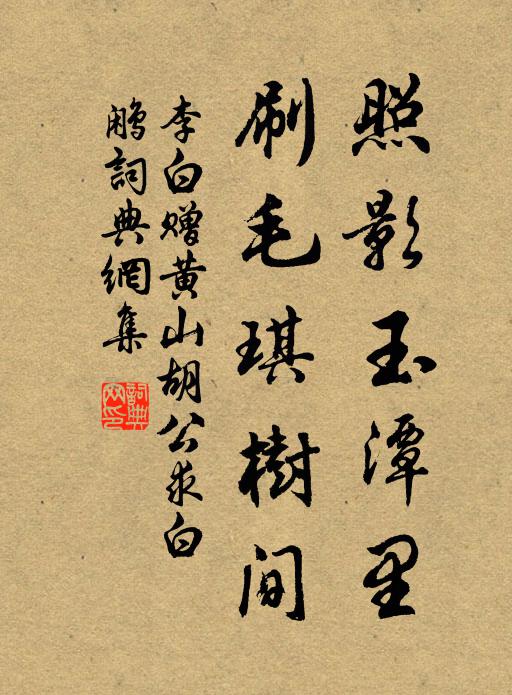 照影玉潭里
刷毛琪樹间
李白赠黄山胡公求白
鹇詞典網集
詞典网印